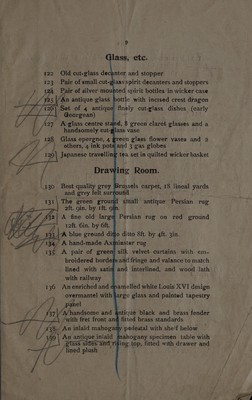 9
Glass, etc.
122 Old cut-glass decanter and stopper
123 Pair of small cut-glass spirit decanters and stoppers
124 Pair of silver mounted spirit bottles in wicker case
125 An antique glass bottle with incised crest dragon
126 Set of 4 antique finely cut-glass dishes (early
Georgean)
127 A glass centre stand, 8 green claret glasses and a
handsomely cut-glass vase
128 Glass epergne, 4 green glass flower vases and 2
others, 4 ink pots and 3 gas globes
129 Japanese travelling tea set in quilted wicker basket
Drawing Room.
130 Best quality grey Brussels carpet, 18 lineal yards
and grey felt surround
131 The green ground small antique Persian rug
2ft. 9in. by 1ft. 9in.
132 A fine old large Persian rug on red ground
12ft. 6in. by 6ft.
133 A blue ground ditto ditto 8ft. by 4ft. 3in.
134 A hand-made Axminster rug
135 A pair of green silk velvet curtains with em-
broidered borders and fringe and valance to match
lined with satin and interlined, and wood lath
with railway
136 An enriched and enamelled white Louis XVI design
overmantel with large glass and painted tapestry
panel
137 A handsome and antique black and brass fender
with fret front and fitted brass standards
138 An inlaid mahogany pedestal with shelf below
139 An antique inlaid mahogany specimen table with
glass sides and rising top, fitted with drawer and
lined plush